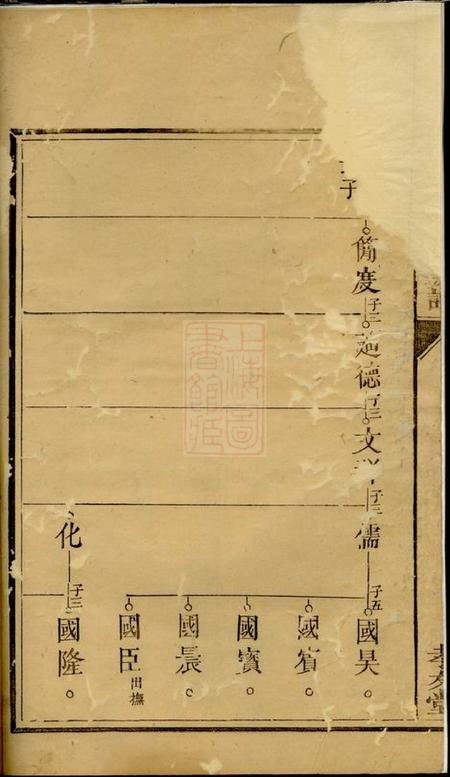 子
簡度
子三
道德
子三
文
子二
儒
子五
國昊
國賓
國寶
國晨
國臣 出撫
化
子三
國隆
上海圖書館藏
孝友堂